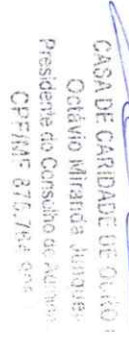 CASA DE CARIDADE DE OURO
Octávio Miranda Junqueira
Presidente do Conselho de
CPF/MF 870.764